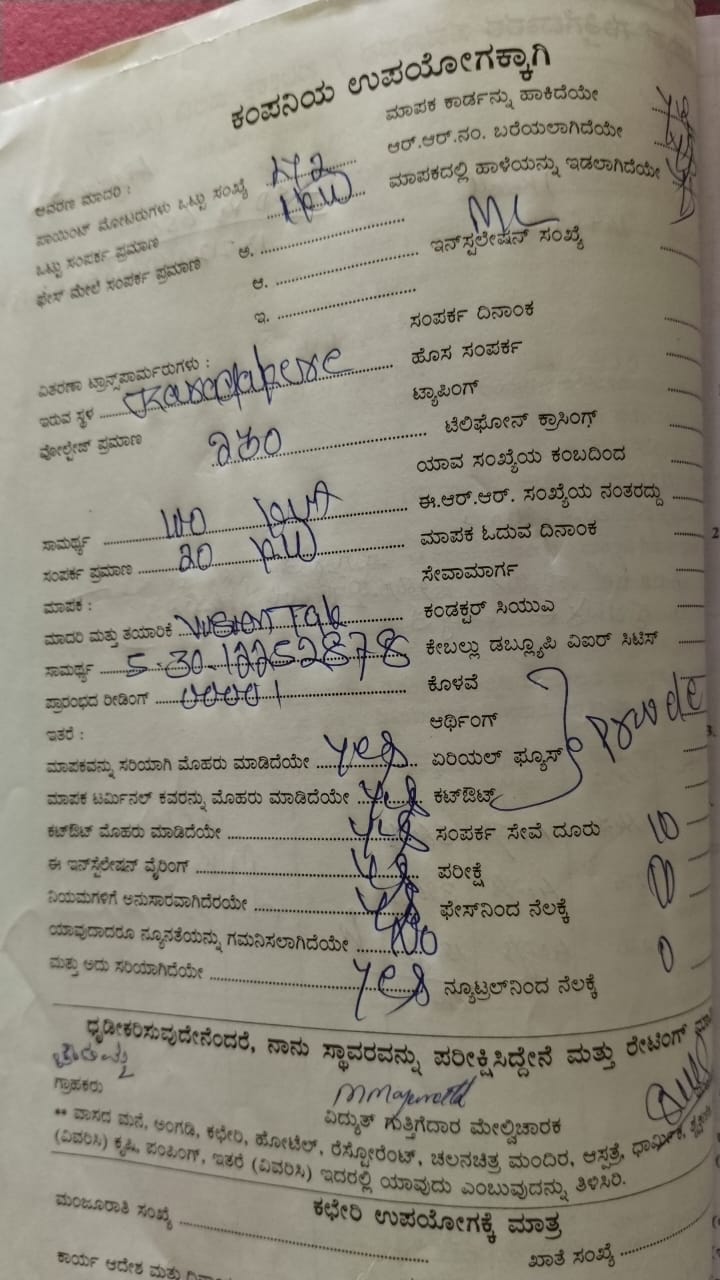 ಕಂಪನಿಯ ಉಪಯೋಗಕ್ಕಾಗಿ
ಆವರಣ ಮಾದರಿ :
ಪಾಯಿಂಟ್ ಮೋಟರುಗಳು ಒಟ್ಟು ಸಂಖ್ಯೆ
ಒಟ್ಟು ಸಂಪರ್ಕ ಪ್ರಮಾಣ 1KW
ಫೇಸ್ ಮೇಲೆ ಸಂಪರ್ಕ ಪ್ರಮಾಣ ಅ.
ಆ.
ಇ.
ವಿತರಣಾ ಟ್ರಾನ್ಸ್‌ಪಾರ್ಮರುಗಳು :
ಇರುವ ಸ್ಥಳ
ವೋಲ್ಟೇಜ್ ಪ್ರಮಾಣ 230
ಸಾಮರ್ಥ್ಯ
ಸಂಪರ್ಕ ಪ್ರಮಾಣ 20 KW
ಮಾಪಕ :
ಮಾದರಿ ಮತ್ತು ತಯಾರಿಕೆ
ಸಾಮರ್ಥ್ಯ 5-30-12252878
ಪ್ರಾರಂಭದ ರೀಡಿಂಗ್ 00001
ಇತರೆ :
ಮಾಪಕವನ್ನು ಸರಿಯಾಗಿ ಮೊಹರು ಮಾಡಿದೆಯೇ yes
ಮಾಪಕ ಟರ್ಮಿನಲ್ ಕವರನ್ನು ಮೊಹರು ಮಾಡಿದೆಯೇ yes
ಕಟ್‌ಔಟ್ ಮೊಹರು ಮಾಡಿದೆಯೇ yes
ಈ ಇನ್‌ಸ್ಟಲೇಷನ್ ವೈರಿಂಗ್ yes
ನಿಯಮಗಳಿಗೆ ಅನುಸಾರವಾಗಿದೆರಯೇ yes
ಯಾವುದಾದರೂ ನ್ಯೂನತೆಯನ್ನು ಗಮನಿಸಲಾಗಿದೆಯೇ NO
ಮತ್ತು ಅದು ಸರಿಯಾಗಿದೆಯೇ yes
ಮಾಪಕ ಕಾರ್ಡನ್ನು ಹಾಕಿದೆಯೇ
ಆರ್.ಆರ್.ನಂ. ಬರೆಯಲಾಗಿದೆಯೇ
ಮಾಪಕದಲ್ಲಿ ಹಾಳೆಯನ್ನು ಇಡಲಾಗಿದೆಯೇ
ML
ಇನ್‌ಸ್ಪಲೇಷನ್ ಸಂಖ್ಯೆ
ಸಂಪರ್ಕ ದಿನಾಂಕ
ಹೊಸ ಸಂಪರ್ಕ
ಟ್ಯಾಪಿಂಗ್
ಟೆಲಿಫೋನ್ ಕ್ರಾಸಿಂಗ್
ಯಾವ ಸಂಖ್ಯೆಯ ಕಂಬದಿಂದ
ಈ.ಆರ್.ಆರ್. ಸಂಖ್ಯೆಯ ನಂತರದ್ದು
ಮಾಪಕ ಓದುವ ದಿನಾಂಕ
ಸೇವಾಮಾರ್ಗ
ಕಂಡಕ್ಟರ್ ಸಿಯುಎ
ಕೇಬಲ್ಲು ಡಬ್ಲ್ಯೂಪಿ ವಿಐರ್ ಸಿಟಿಸ್
ಕೊಳವೆ
ಆರ್ಥಿಂಗ್
ಏರಿಯಲ್ ಫ್ಯೂಸ್
ಕಟ್‌ಔಟ್
ಸಂಪರ್ಕ ಸೇವೆ ದೂರು 10
ಪರೀಕ್ಷೆ
ಫೇಸ್‌ನಿಂದ ನೆಲಕ್ಕೆ
ನ್ಯೂಟ್ರಲ್‌ನಿಂದ ನೆಲಕ್ಕೆ 0
ಧೃಡೀಕರಿಸುವುದೇನೆಂದರೆ, ನಾನು ಸ್ಥಾವರವನ್ನು ಪರೀಕ್ಷಿಸಿದ್ದೇನೆ ಮತ್ತು ರೇಟಿಂಗ್
ಗ್ರಾಹಕರು
ವಿದ್ಯುತ್ ಗುತ್ತಿಗೆದಾರ ಮೇಲ್ವಿಚಾರಕ
** ವಾಸದ ಮನೆ, ಅಂಗಡಿ, ಕಛೇರಿ, ಹೋಟೆಲ್, ರೆಸ್ಟೋರೆಂಟ್, ಚಲನಚಿತ್ರ ಮಂದಿರ, ಆಸ್ಪತ್ರೆ, ಧಾರ್ಮಿಕ,
(ವಿವರಿಸಿ) ಕೃಷಿ, ಪಂಪಿಂಗ್, ಇತರೆ (ವಿವರಿಸಿ) ಇದರಲ್ಲಿ ಯಾವುದು ಎಂಬುವುದನ್ನು ತಿಳಿಸಿರಿ.
ಕಛೇರಿ ಉಪಯೋಗಕ್ಕೆ ಮಾತ್ರ
ಮಂಜೂರಾತಿ ಸಂಖ್ಯೆ
ಖಾತೆ ಸಂಖ್ಯೆ
ಕಾರ್ಯ ಆದೇಶ ಮತ್ತು